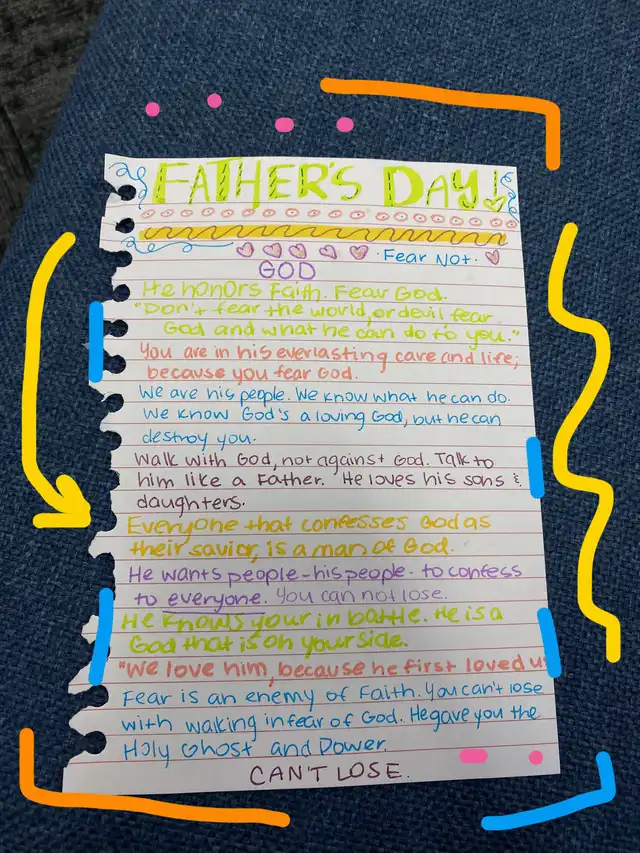 FATHER'S DAY!
Fear Not.
GOD
He honors Faith. Fear God.
"Don't fear the world, or devil fear
God and what he can do to you."
You are in his everlasting care and life;
because you fear God.
We are his people. We know what he can do.
We know God's a loving God, but he can
destroy you.
Walk with God, not against God. Talk to
him like a Father. He loves his sons &
daughters.
Everyone that confesses God as
their savior, is a man of God.
He wants people-his people- to confess
to everyone. You can not lose.
He knows your in battle. He is a
God that is on your side.
"We love him, because he first loved us
Fear is an enemy of Faith. You can't lose
with walking in fear of God. He gave you the
Holy Ghost and Power.
CAN'T LOSE.